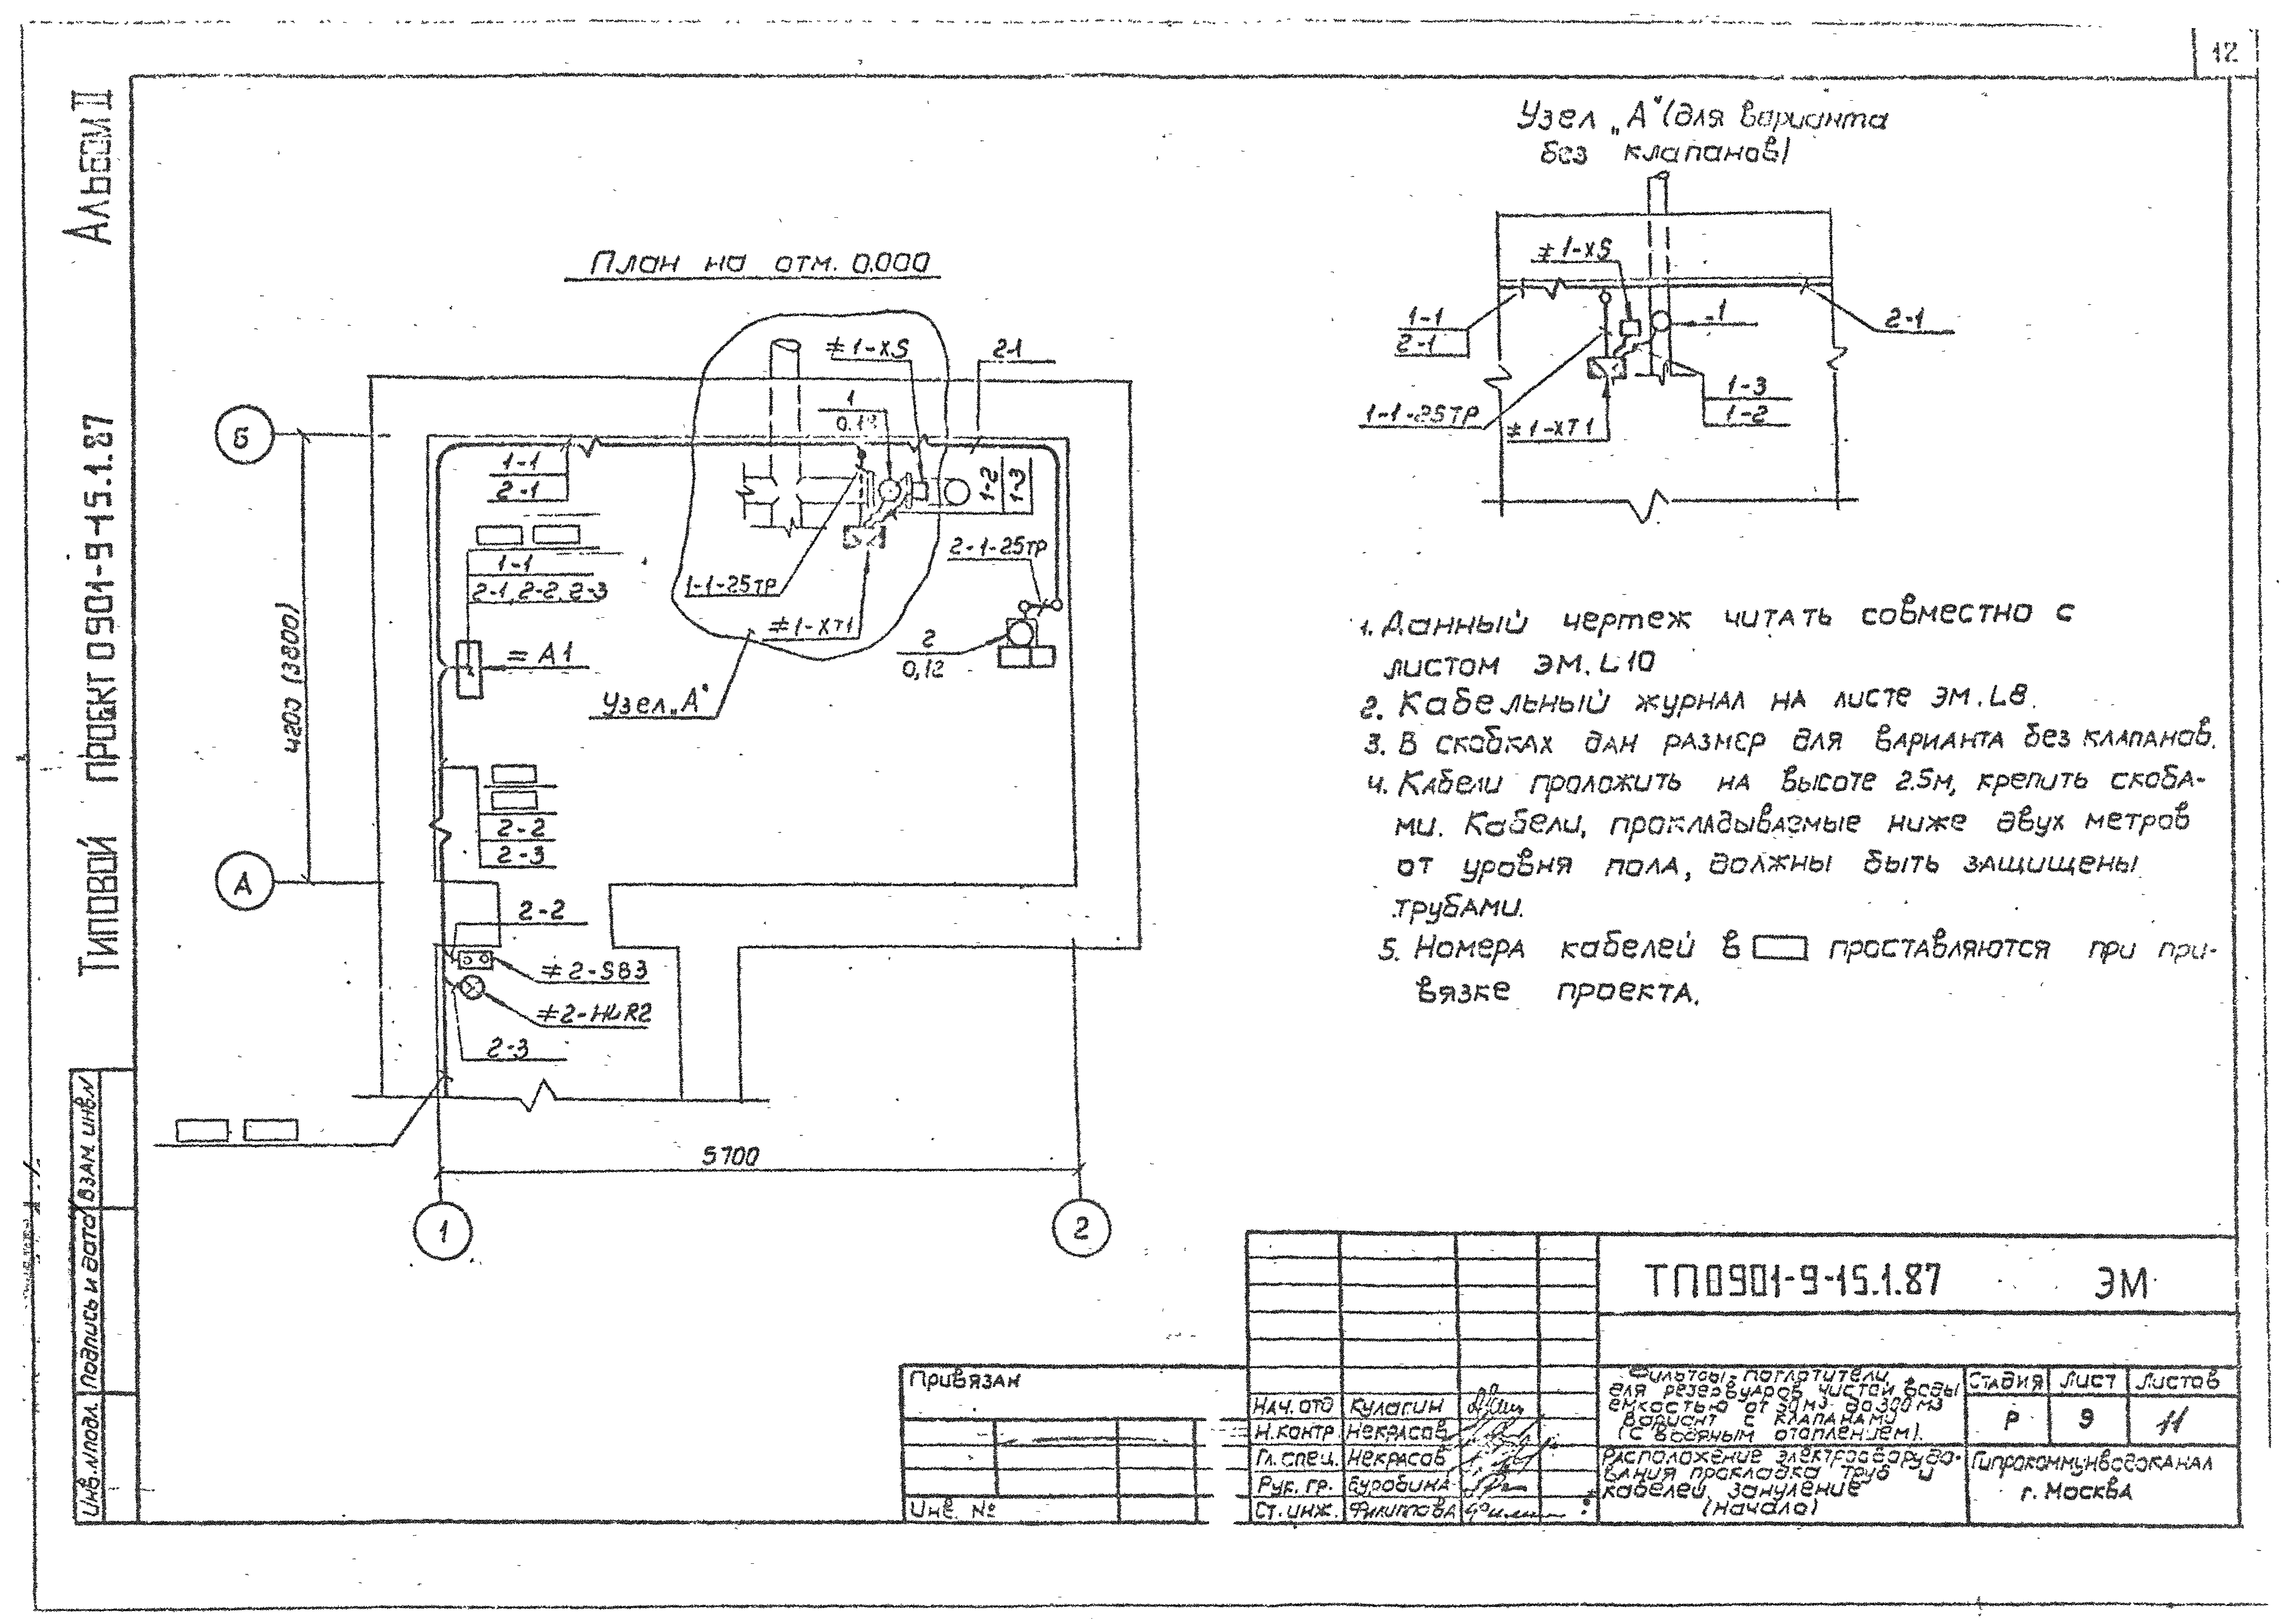 12
Альбом II
Типовой проект 0901-9-15.1.87
Узел „А“ (для варианта
без клапанов)
≠1-XS
1-1
2-1
1
2-1
1-3
1-2
1-1-25ТР
≠1-XT1
План на отм. 0.000
≠1-XS
2-1
1
Б
1-1
2-1
1-2
1-3
1-1
2-1, 2-2, 2-3
2-1-25ТР
1-1-25ТР
≠1-XT1
2
0,12
= А1
Узел „А“
4200 (3800)
2-2
2-3
А
2-2
≠2-SB3
≠2-HLR2
2-3
5700
1
2
1. Данный чертеж читать совместно с
листом ЭМ.L10
2. Кабельный журнал на листе ЭМ.L8.
3. В скобках дан размер для варианта без клапанов.
4. Кабели проложить на высоте 2.5м, крепить скоба-
ми. Кабели, прокладываемые ниже двух метров
от уровня пола, должны быть защищены
трубами.
5. Номера кабелей в проставляются при при-
вязке проекта.
Взам. инв.N
Подпись и дата
Инв.Nподл.
Привязан
Инв. №
ТП0901-9-15.1.87 ЭМ
Нач. отд Кулагин
Н.контр. Некрасов
Гл. спец. Некрасов
Рук. гр. Буробина
Ст. инж. Филиппова
Фильтры-поглотители
для резервуаров чистой воды
емкостью от 50м3 до 300м3
Вариант с клапанами
(с водяным отоплением).
Стадия Лист Листов
Р 9 11
Расположение электрооборудо-
вания прокладка труб и
кабелей, зануление
(Начало)
Гипрокоммунводоканал
г. Москва